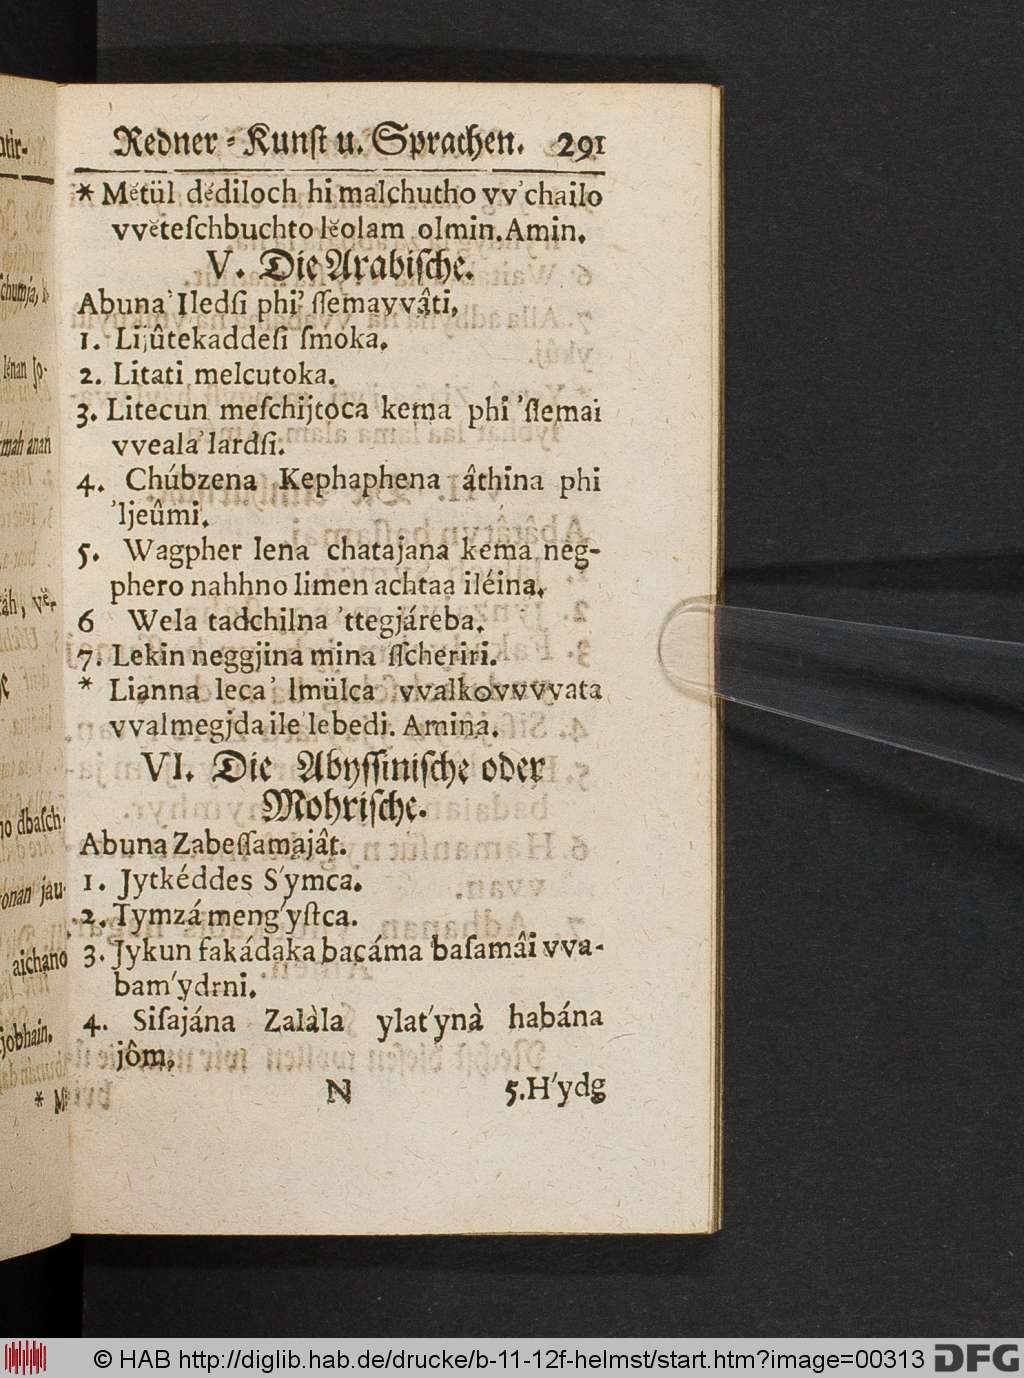 Redner-Kunst u. Sprachen. 291
* Mĕtül dĕdiloch hi malchutho vv'chailo
vvĕteſchbuchto lĕolam olmin. Amin.
V. Die Arabiſche.
Abuna' Iledſi phi' ſſemayvâti,
1. Lijûtekaddeſi ſmoka.
2. Litati melcutoka.
3. Litecun meſchijtoca kema phi 'ſſemai
vveala' lardſi.
4. Chúbzena Kephaphena âthina phi
'ljeûmi.
5. Wagpher lena chatajana kema neg-
phero nahhno limen achtaa iléina.
6 Wela tadchilna 'ttegjáreba.
7. Lekin neggjina mina ſſcheriri.
* Lianna leca' lmülca vvalkovvvvata
vvalmegjda ile lebedi. Amina.
VI. Die Abyſſiniſche oder
Mohriſche.
Abuna Zabeſſamajât.
1. Jytkéddes S'ymca.
2. Tymzá meng'yſtca.
3. Jykun fakádaka bacáma baſamâi vva-
bam'ydrni.
4. Siſajána Zalàla ylat'ynà habána
jôm.
N 5. H'ydg
chumja,
lénan Jo-
mah anan
táh, vĕ,
no dbaſch-
onan jau-
aichano
jobhain.
* M
© HAB http://diglib.hab.de/drucke/b-11-12f-helmst/start.htm?image=00313 DFG